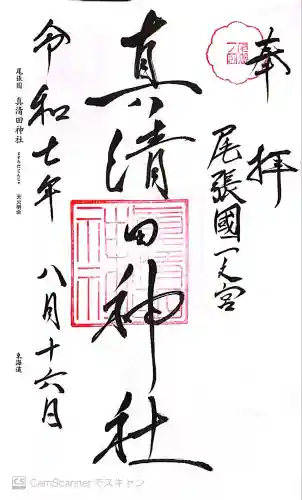 奉拝
尾張國一之宮
真清田神社
令和七年 八月十六日
尾張国 真清田神社
東海道
CamScannerでスキャン